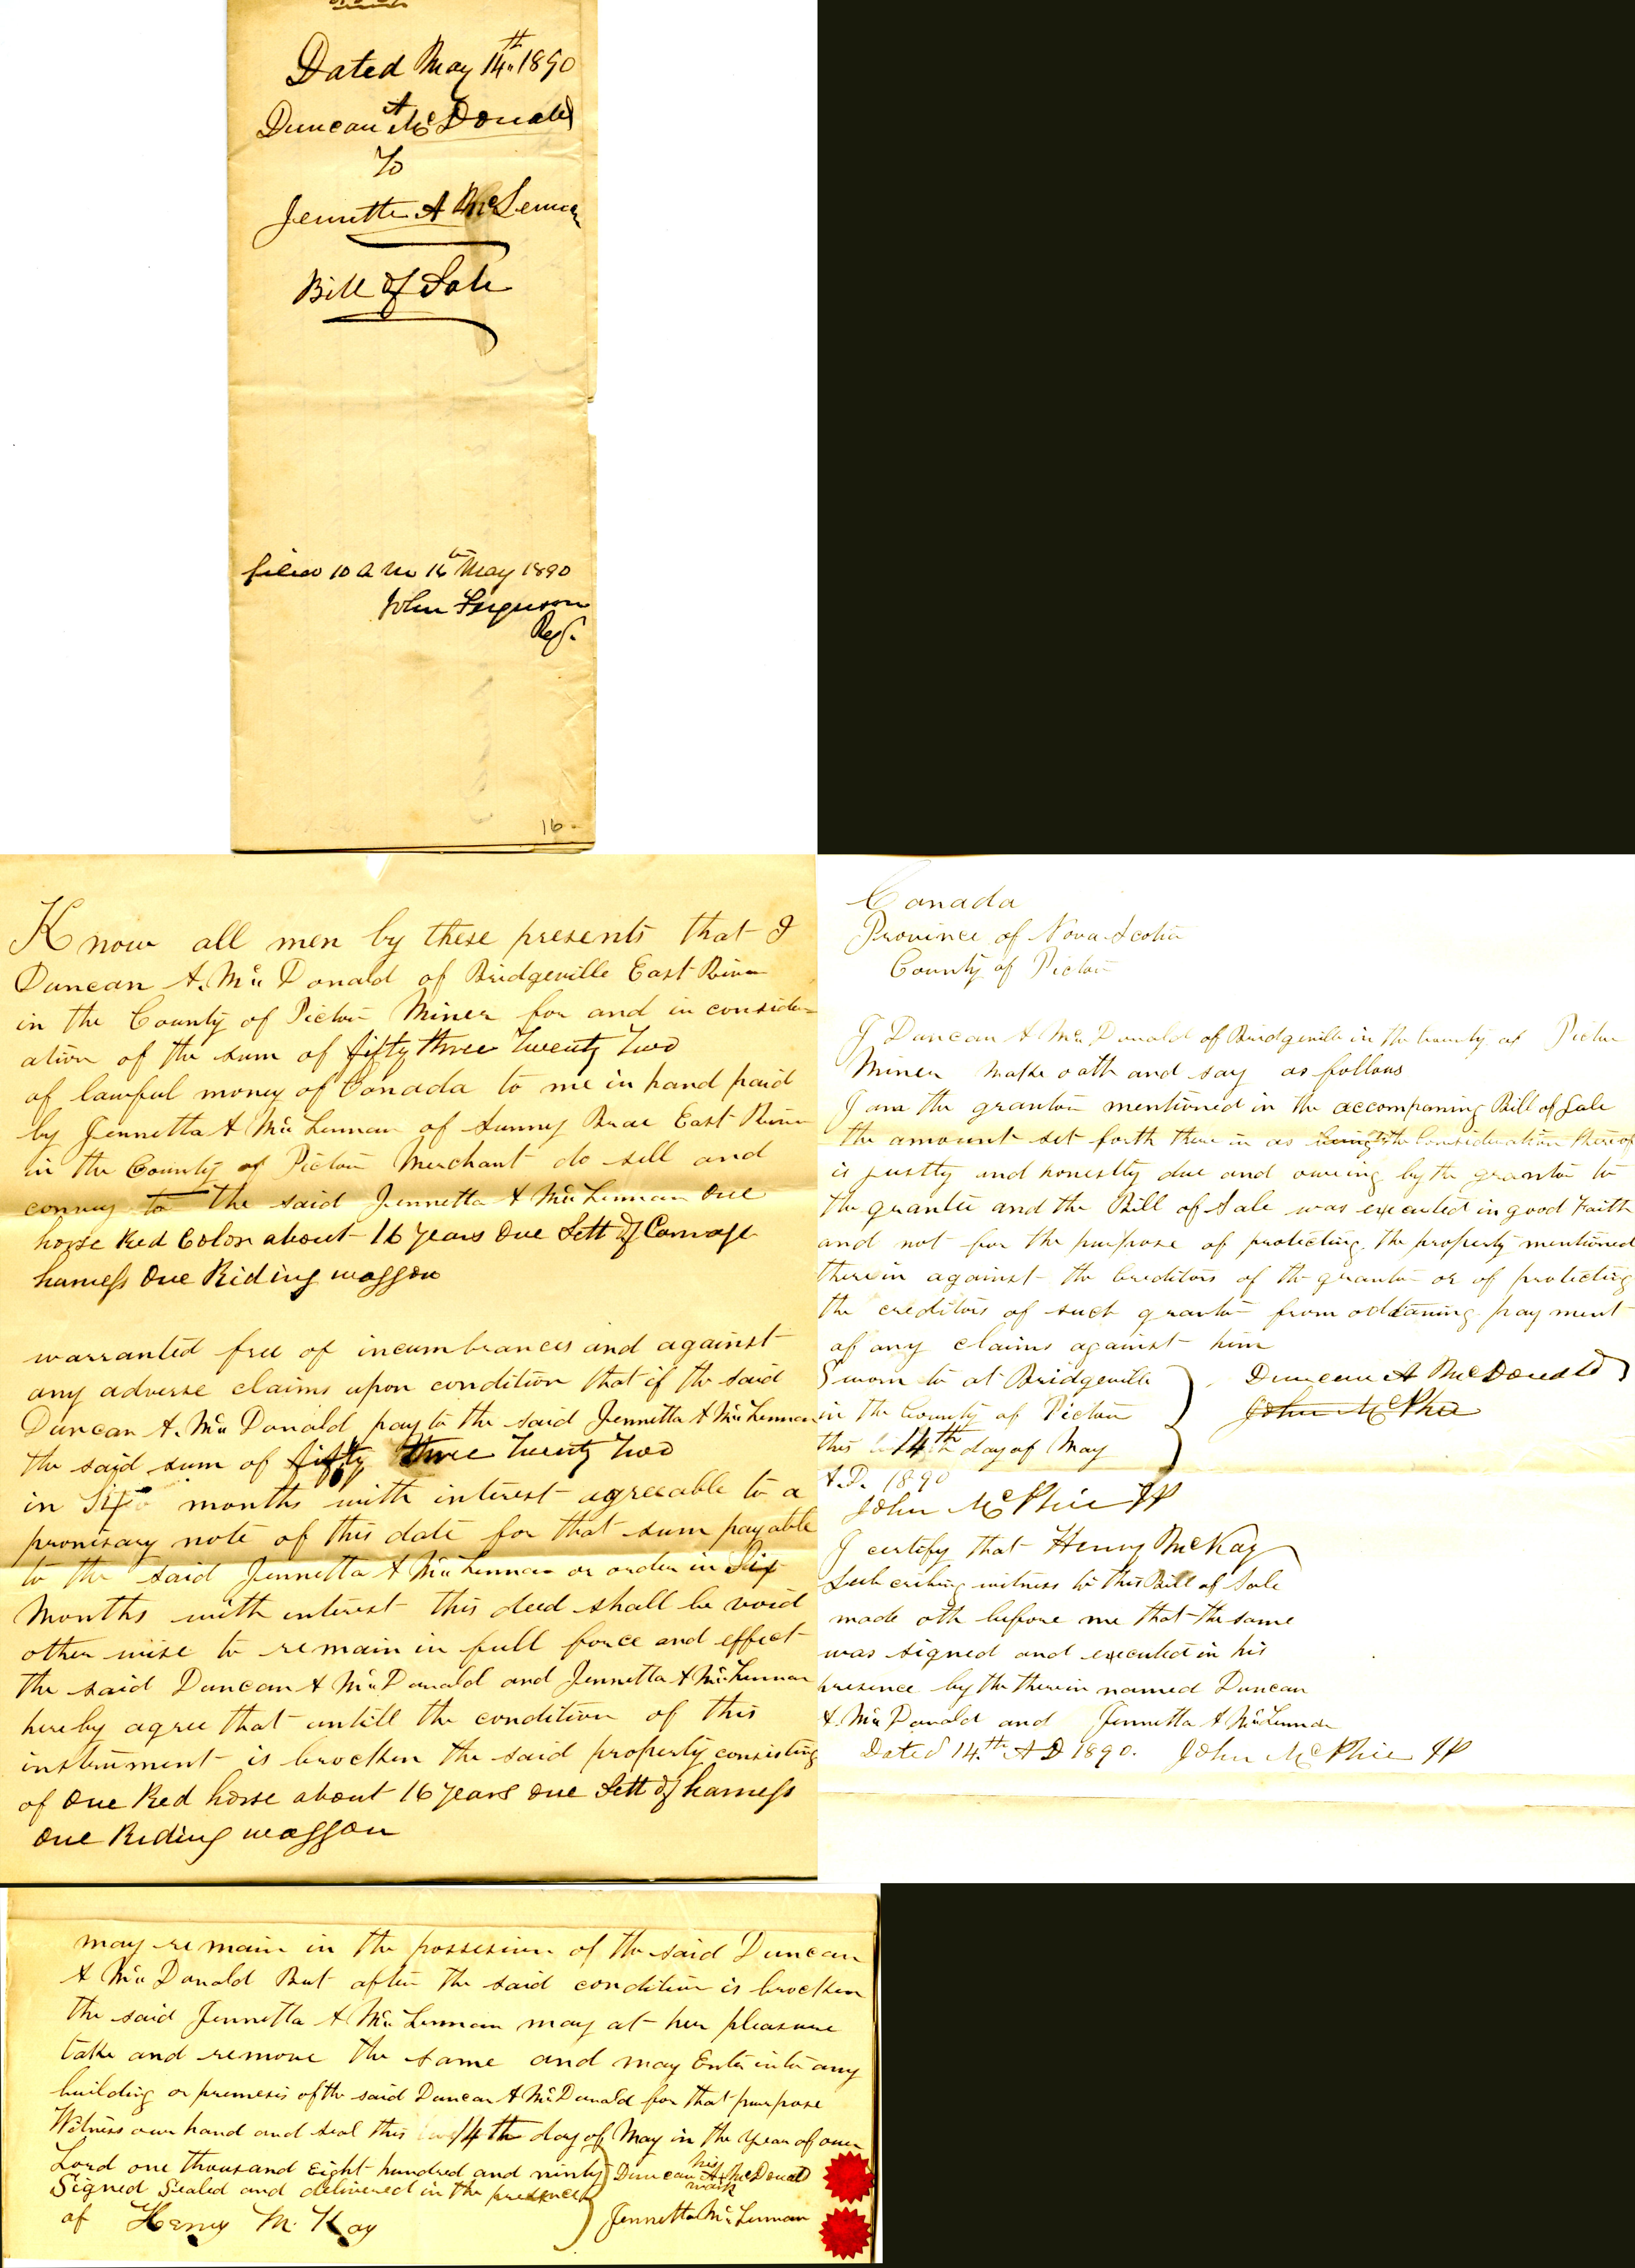 Dated May 14th 1890
Duncan A McDonald
To
Jennette A McLennan
Bill of Sale
filed 10 a m 16th May 1890
John Ferguson
Reg.
16
Know all men by these presents that I
Duncan A. McDonald of Bridgeville East River
in the County of Pictou Miner for and in consider=
ation of the sum of fifty three Twenty Two
of lawful money of Canada to me in hand paid
by Jennetta A McLennan of Sunny Brae East River
in the County of Pictou Merchant do sell and
convey to the said Jennetta A McLennan One
horse Red Color about 16 years One Sett of Carriage
harness One Riding waggon
warranted free of incumbrances and against
any adverse claims upon condition that if the said
Duncan A. McDonald pay to the said Jennetta A McLennan
the said sum of fifty three Twenty Two
in months with interest agreeable to a
promisary note of this date for that sum payable
to the said Jennetta A McLennan or order in Six
Months with interest this deed shall be void
other wise to remain in full force and effect
the said Duncan A McDonald and Jennetta A McLennan
hereby agree that untill the condition of this
instrument is brocken the said property consisting
of One Red horse about 16 years One Sett of harness
One Riding waggon
Canada
Province of Nova Scotia
County of Pictou
I Duncan A McDonald of Bridgeville in the County of Pictou
Miner make oath and say as follows
I am the grantor mentioned in the accompaning Bill of Sale
the amount set forth there in as being the Consideration thereof
is justly and honestly due and oweing by the grantor to
the grantee and the Bill of Sale was executed in good Faith
and not for the purpose of protecting the property mentioned
therein against the Creditors of the grantor or of protecting
the creditors of such grantor from obtaning payment
of any claims against him
Sworn to at Bridgeville Duncan A McDonald
in the County of Pictou John McPhie
this 14th day of May
A.D. 1890
John McPhie JP
I certify that Henry McKay
Subcribing witness to this Bill of Sale
made oth before me that the same
was signed and executed in his
presence by the therein named Duncan
A. McDonald and Jennetta A McLennan
Dated 14.th A D 1890. John McPhie JP
may remain in the possesion of the said Duncan
A McDonald But after the said condition is brocken
the said Jennetta A McLennan may at her pleasure
take and remove the same and may Enter into any
building or premesis of the said Duncan A McDonald for that purpose
Witness our hand and seal this 14th day of May in the year of our
Lord one thousand Eight hundred and ninty Duncan A his mark McDonald
Signed Sealed and delivered in the presence
of Henry McKay Jennetta McLennan